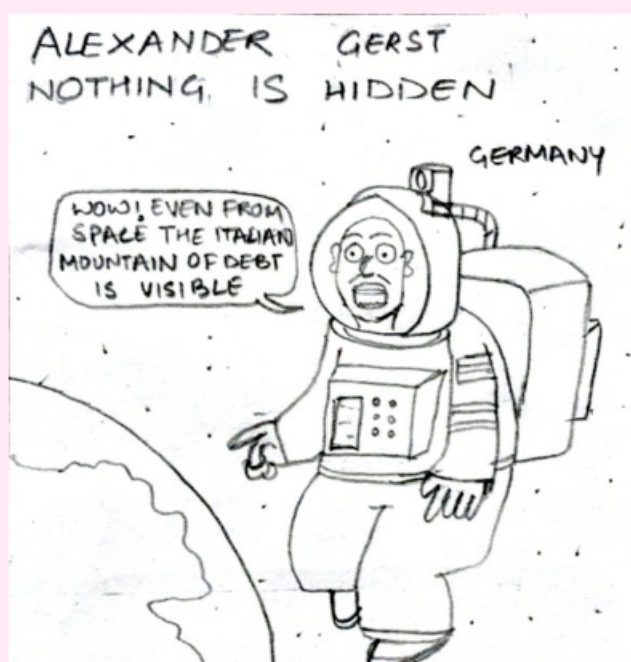 ALEXANDER GERST
NOTHING IS HIDDEN
GERMANY
WOW! EVEN FROM
SPACE THE ITALIAN
MOUNTAIN OF DEBT
IS VISIBLE